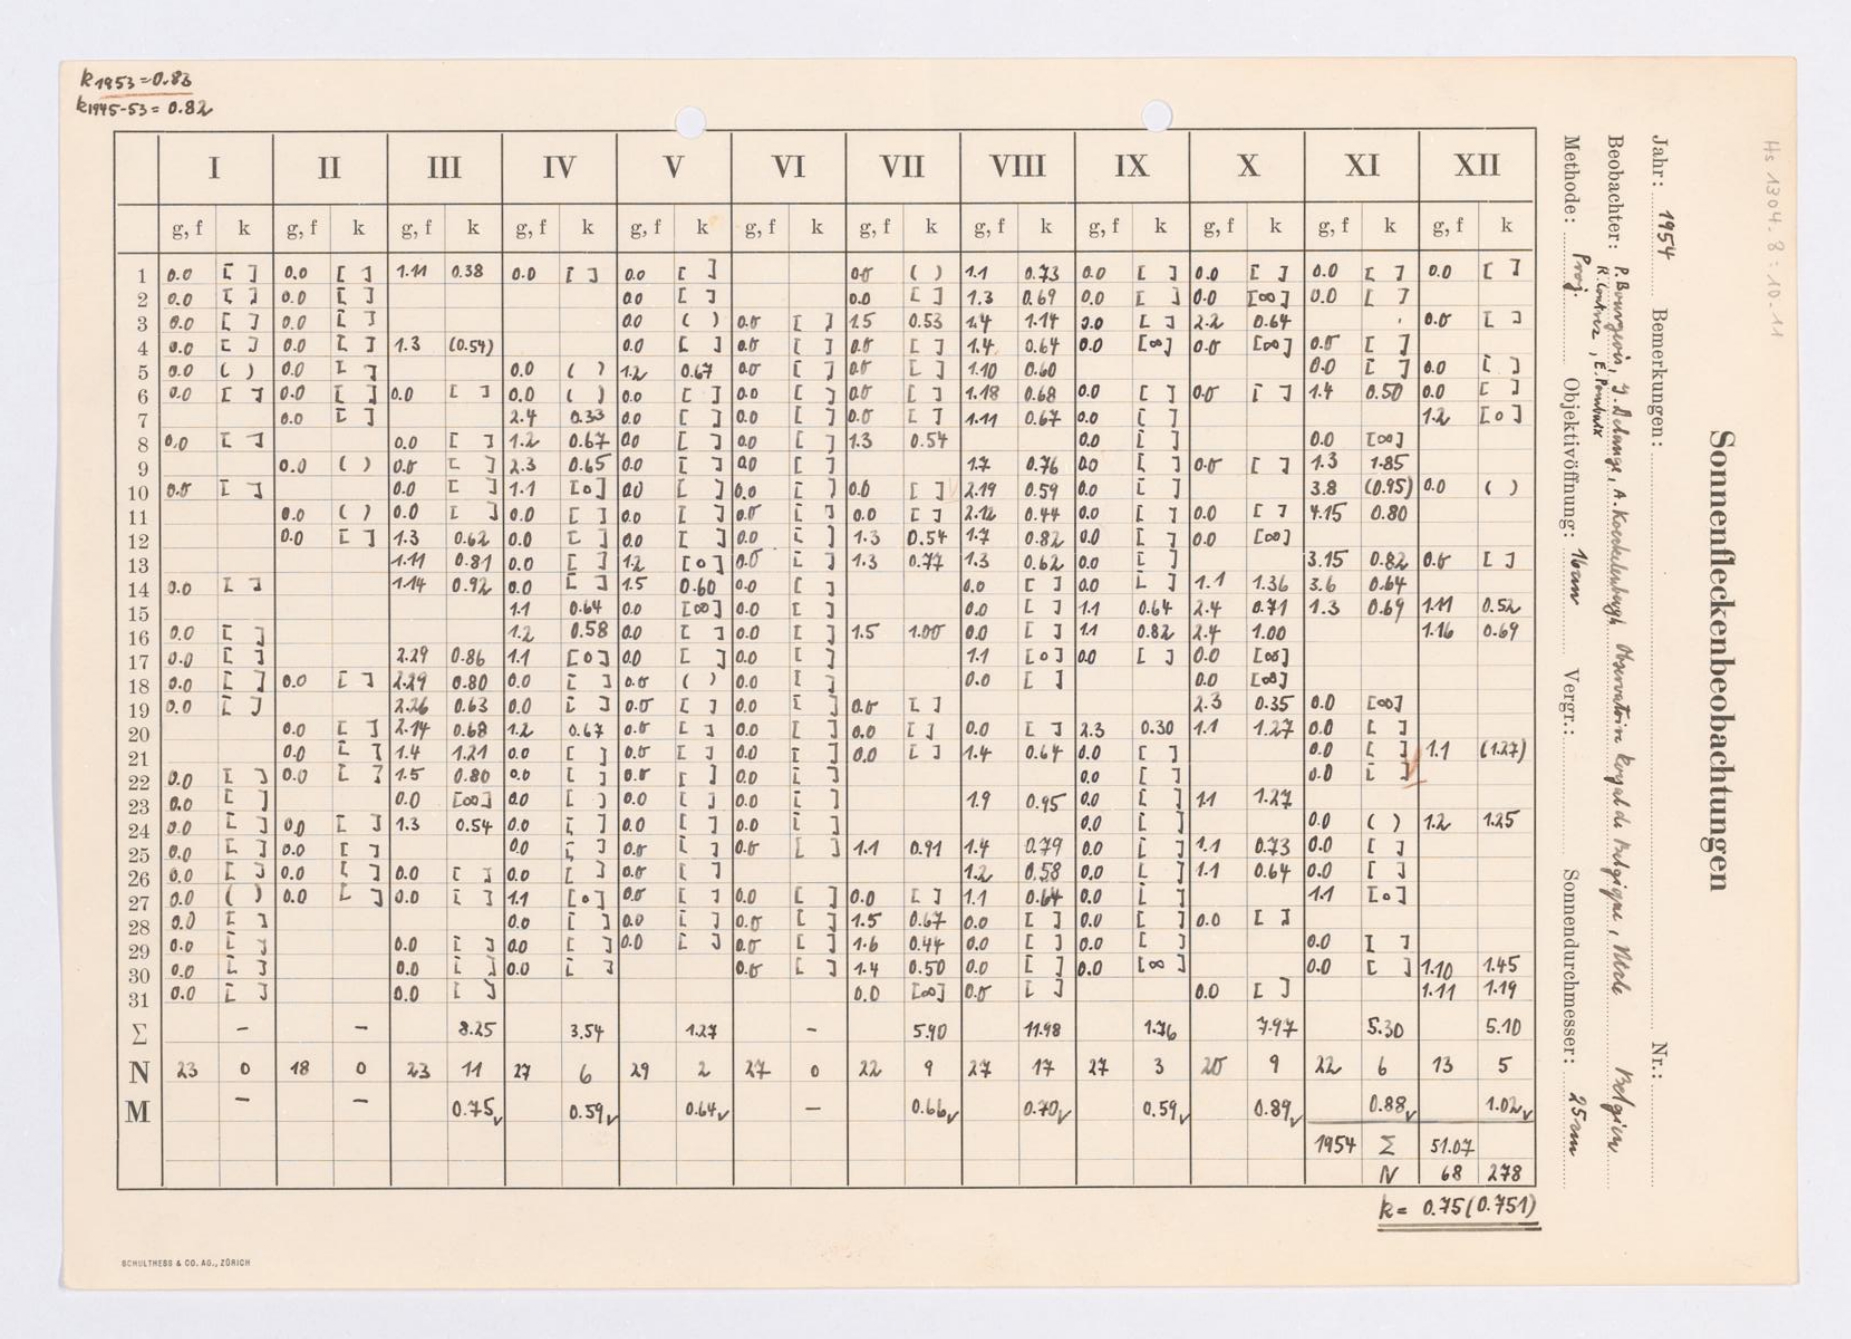 k1953=0.83
k1945-53=0.82
Sonnenfleckenbeobachtungen
Hs 1304.8:10.11
Jahr: 1954 Bemerkungen: Nr.:
Beobachter: P. Bourgeois, A. Koeckelenbergh Observatoire Royal de Belgique, Uccle Belgien
R. Coutrez
Methode: Proj. Objektivöffnung: 16cm Vergr.: Sonnendurchmesser: 25cm
I II III IV V VI VII VIII IX X XI XII
g, f k g, f k g, f k g, f k g, f k g, f k g, f k g, f k g, f k g, f k g, f k g, f k
1 0.0 [ ] 0.0 [ ] 1.11 0.38 0.0 [ ] 0.0 [ ] 0.0 ( ) 1.1 0.73 0.0 [ ] 0.0 [ ] 0.0 [ ] 0.0 [ ]
2 0.0 [ ] 0.0 [ ] 0.0 [ ] 0.0 [ ] 1.3 0.69 0.0 [ ] 0.0 [∞] 0.0 [ ]
3 0.0 [ ] 0.0 [ ] 0.0 ( ) 0.0 [ ] 1.5 0.53 1.4 1.14 0.0 [ ] 2.2 0.64 0.0 [ ]
4 0.0 [ ] 0.0 [ ] 1.3 (0.54) 0.0 [ ] 0.0 [ ] 0.0 [ ] 1.4 0.64 0.0 [∞] 0.0 [∞] 0.0 [ ]
5 0.0 ( ) 0.0 [ ] 0.0 ( ) 1.2 0.67 0.0 [ ] 0.0 [ ] 1.10 0.60 0.0 [ ] 0.0 [ ]
6 0.0 [ ] 0.0 [ ] 0.0 [ ] 0.0 ( ) 0.0 [ ] 0.0 [ ] 0.0 [ ] 1.18 0.68 0.0 [ ] 0.0 [ ] 1.4 0.50 0.0 [ ]
7 0.0 [ ] 2.4 0.33 0.0 [ ] 0.0 [ ] 0.0 [ ] 1.11 0.67 0.0 [ ] 1.2 [0]
8 0.0 [ ] 0.0 [ ] 1.2 0.67 0.0 [ ] 0.0 [ ] 1.3 0.54 0.0 [ ] 0.0 [∞]
9 0.0 ( ) 0.0 [ ] 2.3 0.65 0.0 [ ] 0.0 [ ] 1.7 0.76 0.0 [ ] 0.0 [ ] 1.3 1.85
10 0.0 [ ] 0.0 [ ] 1.1 [0] 0.0 [ ] 0.0 [ ] 0.0 [ ] 2.19 0.59 0.0 [ ] 3.8 (0.95) 0.0 ( )
11 0.0 ( ) 0.0 [ ] 0.0 [ ] 0.0 [ ] 0.0 [ ] 0.0 [ ] 2.12 0.44 0.0 [ ] 0.0 [ ] 4.15 0.80
12 0.0 [ ] 1.3 0.62 0.0 [ ] 0.0 [ ] 0.0 [ ] 1.3 0.54 1.7 0.82 0.0 [ ] 0.0 [∞]
13 1.11 0.81 0.0 [ ] 1.2 [0] 0.0 [ ] 1.3 0.77 1.3 0.62 0.0 [ ] 3.15 0.82 0.0 [ ]
14 0.0 [ ] 1.14 0.92 0.0 [ ] 1.5 0.60 0.0 [ ] 0.0 [ ] 0.0 [ ] 1.1 1.36 3.6 0.64
15 1.1 0.64 0.0 [∞] 0.0 [ ] 0.0 [ ] 1.1 0.64 2.4 0.71 1.3 0.69 1.11 0.52
16 0.0 [ ] 1.2 0.58 0.0 [ ] 0.0 [ ] 1.5 1.00 0.0 [ ] 1.1 0.82 2.4 1.00 1.16 0.69
17 0.0 [ ] 2.29 0.86 1.1 [0] 0.0 [ ] 0.0 [ ] 1.1 [0] 0.0 [ ] 0.0 [∞]
18 0.0 [ ] 0.0 [ ] 2.29 0.80 0.0 [ ] 0.0 ( ) 0.0 [ ] 0.0 [ ] 0.0 [∞]
19 0.0 [ ] 2.26 0.63 0.0 [ ] 0.0 [ ] 0.0 [ ] 0.0 [ ] 2.3 0.35 0.0 [∞]
20 0.0 [ ] 2.14 0.68 1.2 0.67 0.0 [ ] 0.0 [ ] 0.0 [ ] 0.0 [ ] 2.3 0.30 1.1 1.27 0.0 [ ]
21 0.0 [ ] 1.4 1.21 0.0 [ ] 0.0 [ ] 0.0 [ ] 0.0 [ ] 1.4 0.64 0.0 [ ] 0.0 [ ] 1.1 (1.27)
22 0.0 [ ] 0.0 [ ] 1.5 0.80 0.0 [ ] 0.0 [ ] 0.0 [ ] 0.0 [ ] 0.0 [ ]
23 0.0 [ ] 0.0 [∞] 0.0 [ ] 0.0 [ ] 0.0 [ ] 1.9 0.95 0.0 [ ] 1.1 1.27
24 0.0 [ ] 0.0 [ ] 1.3 0.54 0.0 [ ] 0.0 [ ] 0.0 [ ] 0.0 [ ] 0.0 ( ) 1.2 1.25
25 0.0 [ ] 0.0 [ ] 0.0 [ ] 0.0 [ ] 0.0 [ ] 1.1 0.91 1.4 0.79 0.0 [ ] 1.1 0.73 0.0 [ ]
26 0.0 [ ] 0.0 [ ] 0.0 [ ] 0.0 [ ] 0.0 [ ] 1.2 0.58 0.0 [ ] 1.1 0.64 0.0 [ ]
27 0.0 ( ) 0.0 [ ] 0.0 [ ] 1.1 [0] 0.0 [ ] 0.0 [ ] 0.0 [ ] 1.1 0.64 0.0 [ ] 1.1 [0]
28 0.0 [ ] 0.0 [ ] 0.0 [ ] 0.0 [ ] 1.5 0.67 0.0 [ ] 0.0 [ ] 0.0 [ ]
29 0.0 [ ] 0.0 [ ] 0.0 [ ] 0.0 [ ] 0.0 [ ] 1.6 0.44 0.0 [ ] 0.0 [ ] 0.0 [ ]
30 0.0 [ ] 0.0 [ ] 0.0 [ ] 0.0 [ ] 1.4 0.50 0.0 [ ] 0.0 [∞] 0.0 [ ] 1.10 1.45
31 0.0 [ ] 0.0 [ ] 0.0 [∞] 0.0 [ ] 0.0 [ ] 1.11 1.19
Σ - - 8.25 3.54 1.27 - 5.90 11.98 1.76 7.97 5.30 5.10
N 23 0 18 0 23 11 27 6 29 2 27 0 22 9 27 17 27 3 20 9 22 6 13 5
M - - 0.75 0.59 0.64 - 0.66 0.70 0.59 0.89 0.88 1.02
1954 Σ 51.07
N 68 278
k = 0.75 (0.751)
SCHULTHESS & CO. AG., ZÜRICH